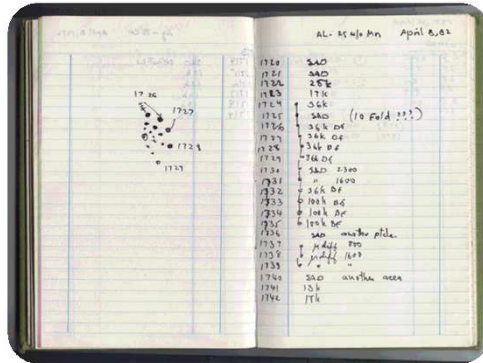 1726
1727
1728
1729
AL-25 w/o Mn April 8, 82
1720 SAD
1721 SAD
1722 25k
1723 17k
1724 36k
1725 SAD (10 Fold ???)
1726 36k DF
1727 36k DF
1728 36k DF
1729 36k DF
1730 SAD 2300
1731 " 1600
1732 36k BF
1733 100k BF
1734 100k DF
1735 100k DF
1736 SAD another
1737 μdiff 800
1738 μdiff 1600
1739 "
1740 SAD another area
1741 13k
1742 17k